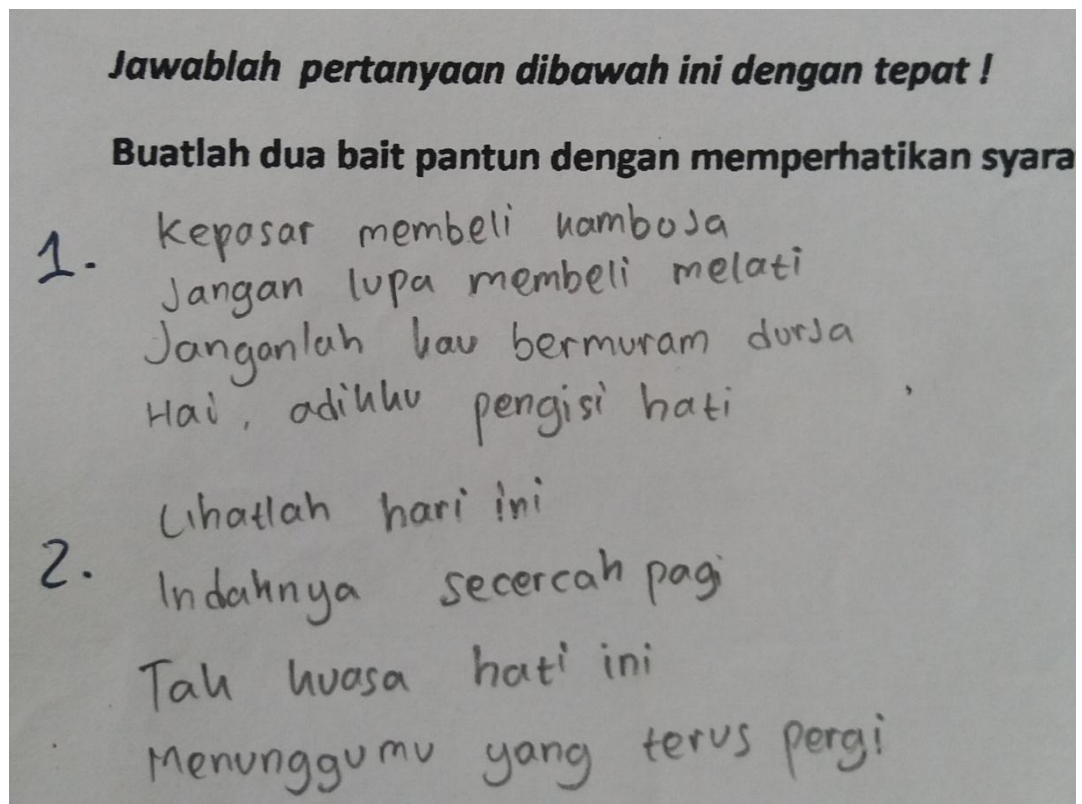 Jawablah pertanyaan dibawah ini dengan tepat !
Buatlah dua bait pantun dengan memperhatikan syara
1. Kepasar membeli kamboja
Jangan lupa membeli melati
Janganlah kau bermuram durja
Hai, adikku pengisi hati
2. Lihatlah hari ini
Indahnya secercah pagi
Tak kuasa hati ini
Menunggumu yang terus pergi